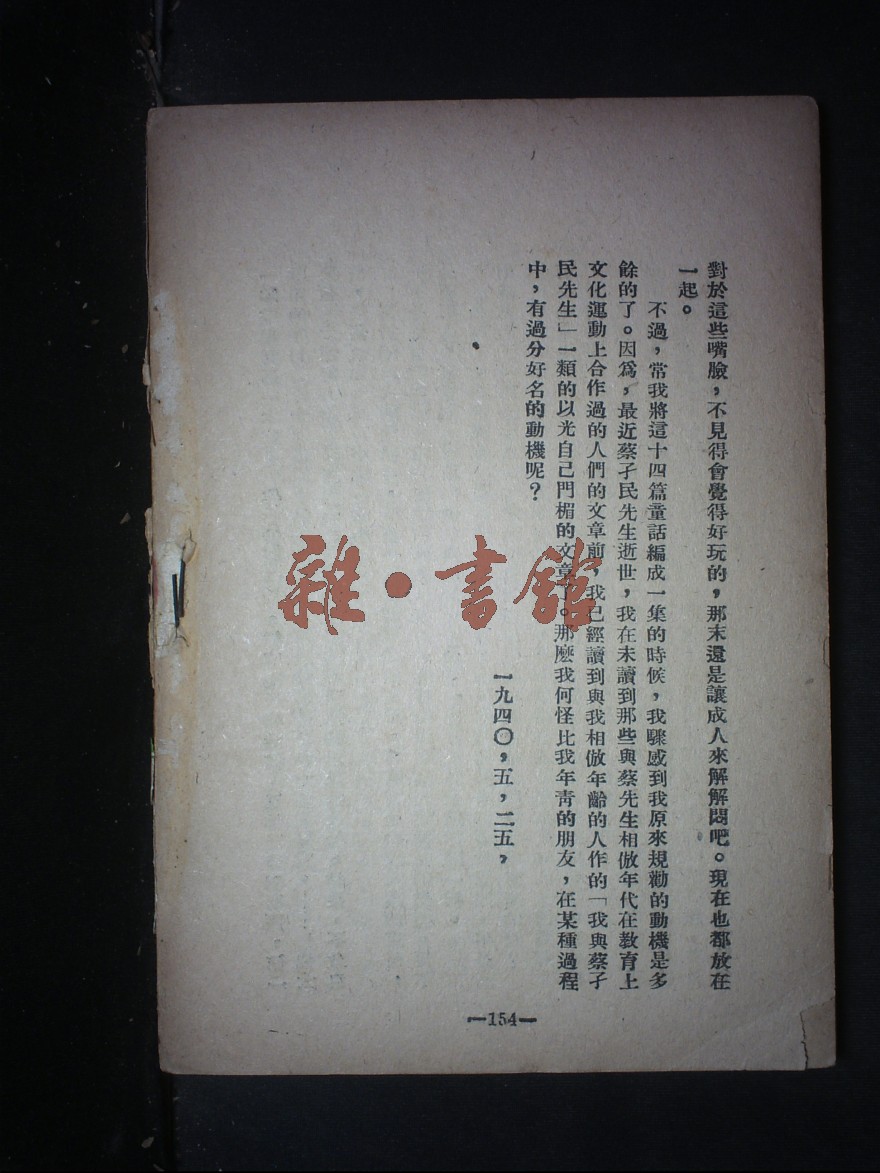 對於這些嘴臉，不見得會覺得好玩的，那末還是讓成人來解解悶吧。現在也都放在
一起。
不過，常我將這十四篇童話編成一集的時候，我驟感到我原來規勸的動機是多
餘的了。因爲，最近蔡孑民先生逝世，我在未讀到那些與蔡先生相倣年代在教育上
文化運動上合作過的人們的文章前，我已經讀到與我相倣年齡的人作的「我與蔡孑
民先生」一類的以光自己門楣的文章了。那麽我何怪比我年靑的朋友，在某種過程
中，有過分好名的動機呢？
一九四〇，五，二五，
—154—
雜·書館